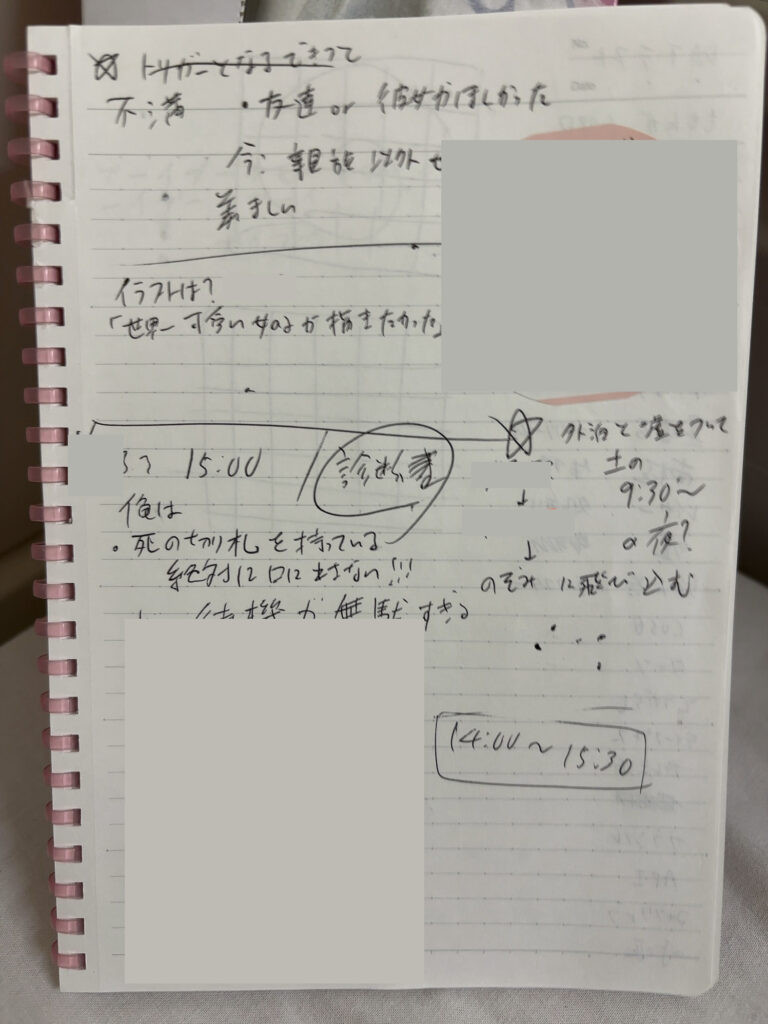 トリガーとなるできごと
不満 ・友達 or 彼女がほしかった
今: 親族以外
羨ましい
イラストは?
「世界一可愛い女の子が描きたかった」
15:00 / 診断書
俺は
・死の切り札を持っている
絶対に口に出さない!!!
待機が無駄すぎる
☆ 外泊と嘘をついて
土の
9:30〜
↓
の夜?
↓
のぞみに飛び込む
14:00〜15:30